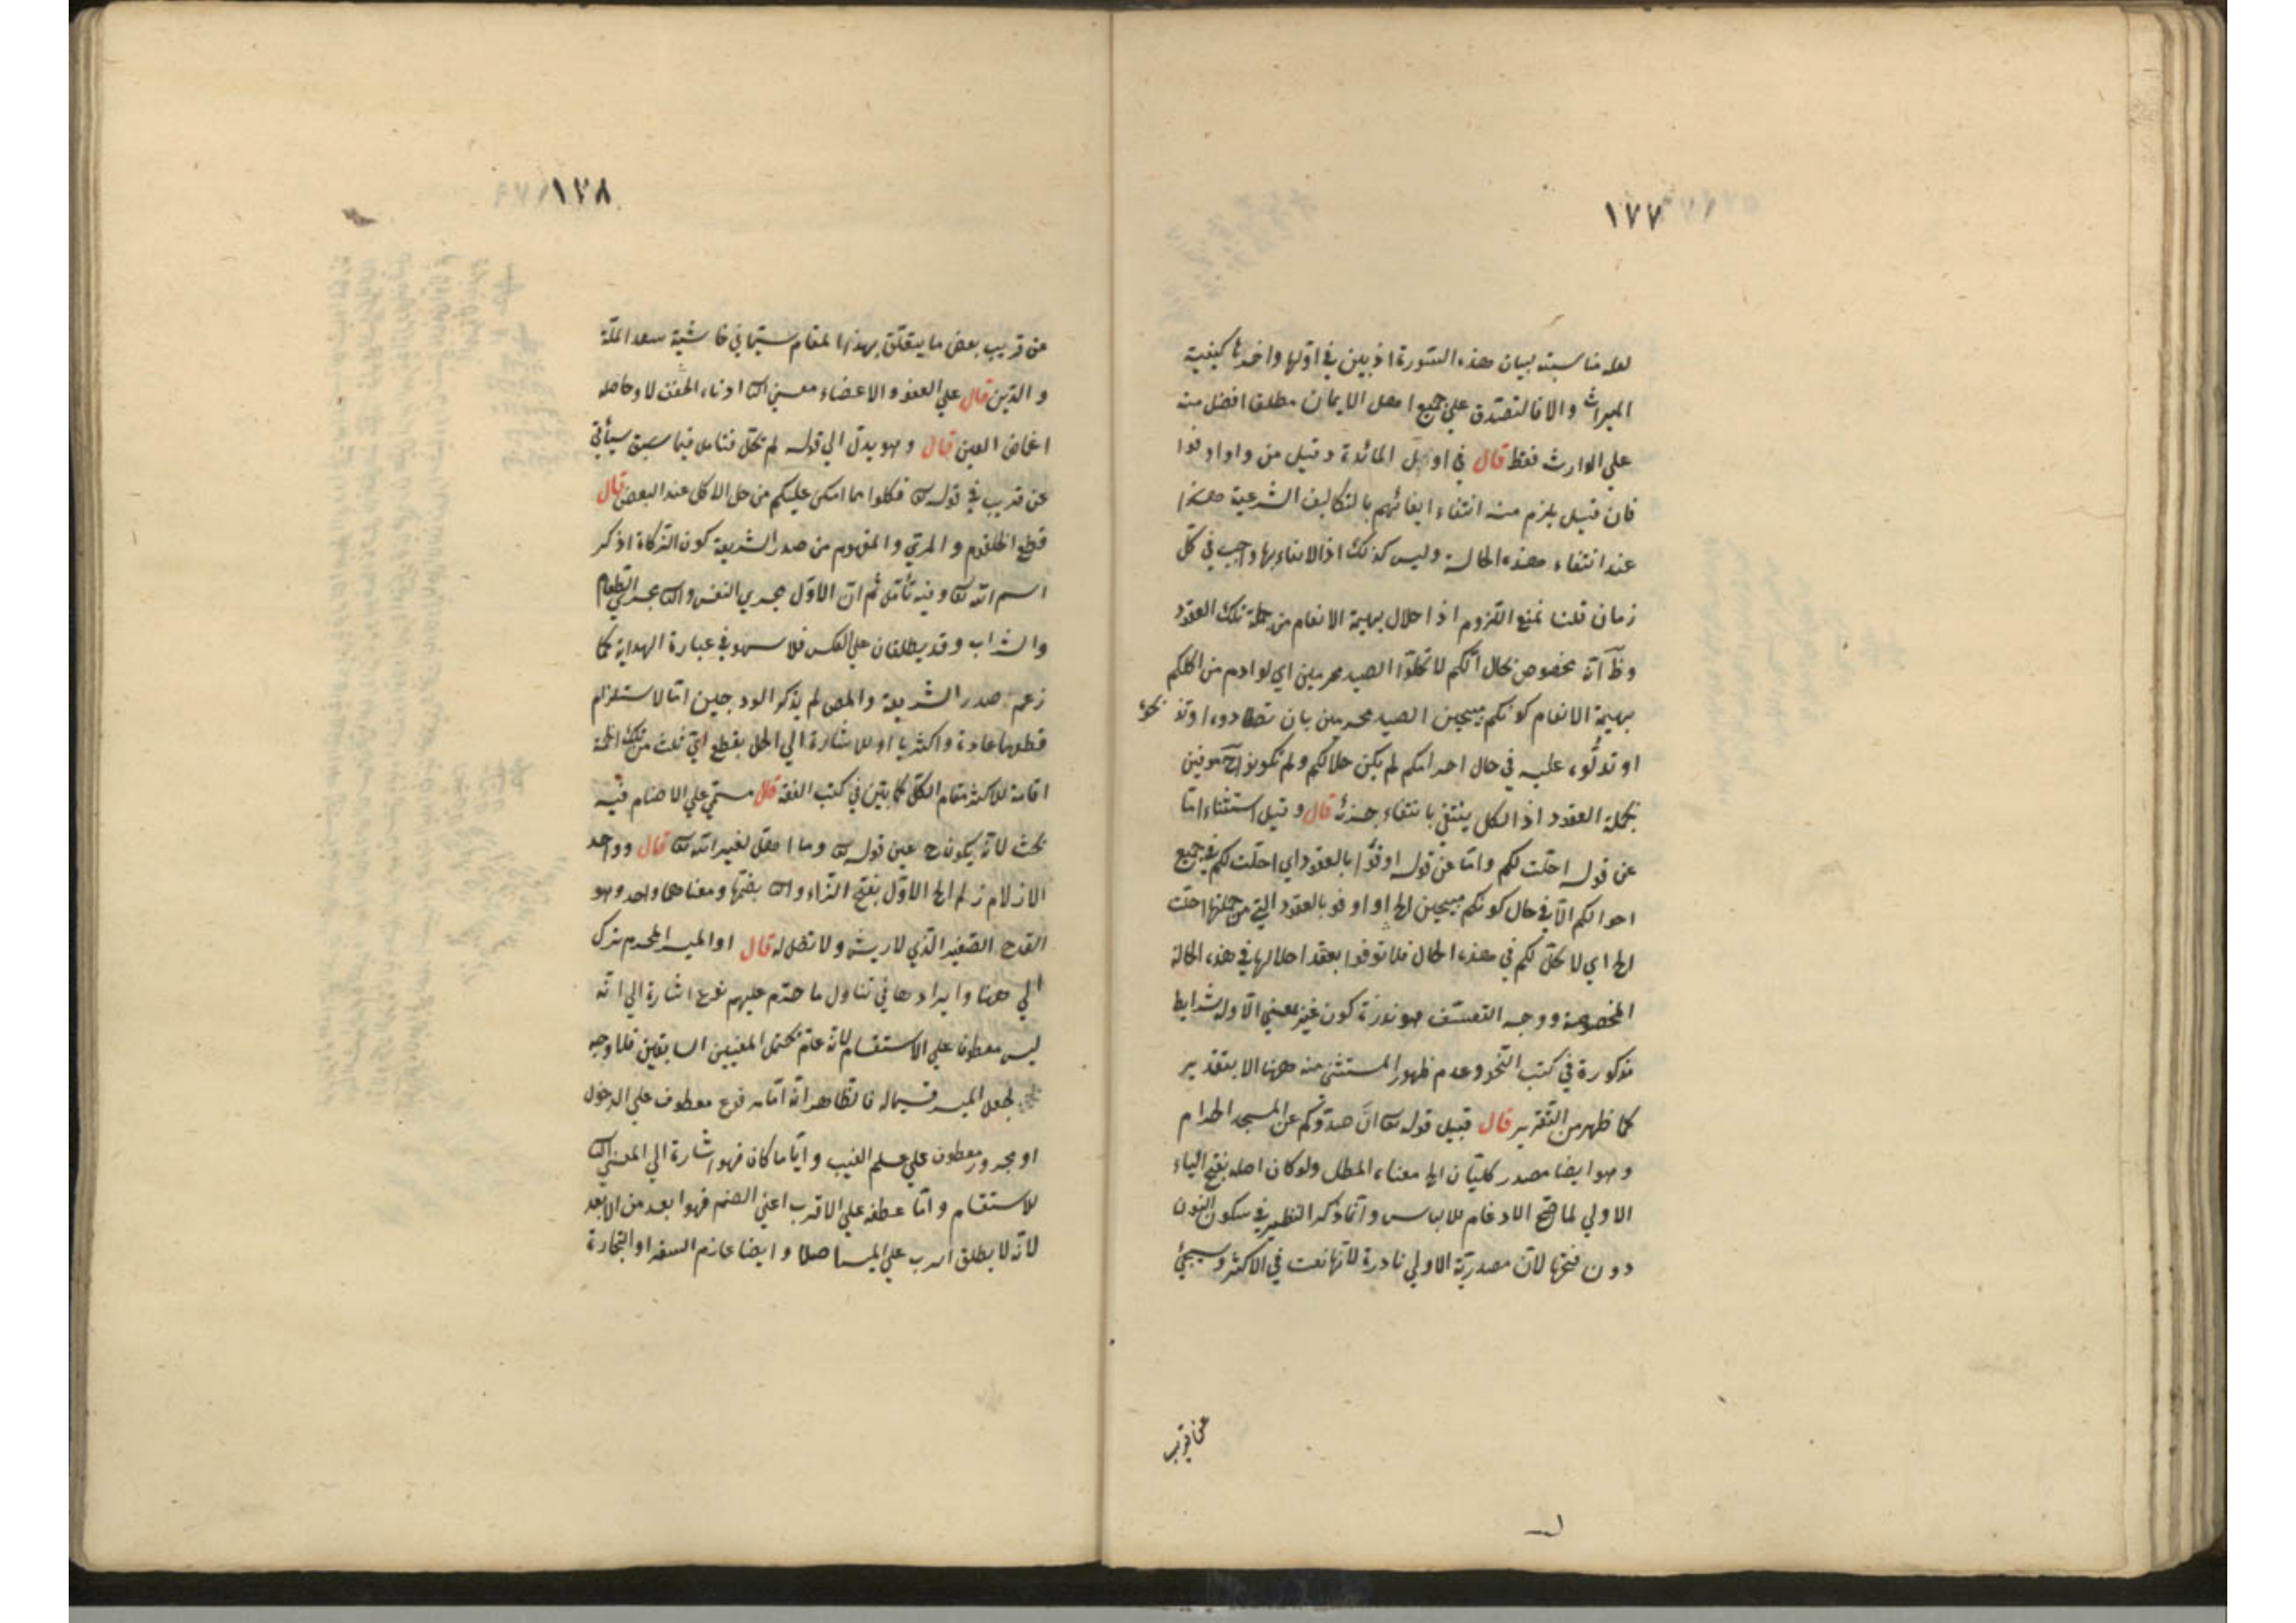 ١٧٧
لعله مناسبته لبيان هذه السورة اذ بين في اولها واخرها كيفية
الميراث والا فالتصدق علي جميع اهل الايمان مطلقا افضل منه
علي الوارث فقط قال في اوئل المائدة وقيل من واو اوفوا
فان قيل يلزم منه انتفاء ايفائهم بالتكاليف الشرعية
عند انتفاء هذه الحالة وليس كذلك اذ الايفاء بها واجب في كل
زمان قلنا نمنع اللزوم اذ احلال بهيمة الانعام من جملة تلك العقود
مخصوص بحال انكم لا تحلوا الصيد محرمين اي لو ادم من اكلكم
بهيمة الانعام كونكم مبيحين الصيد محرمين بان تصطادوه او
او تدلوه عليه في حال احرامكم لم يكن حلالكم ولم تكونوا ح موفين
بجملة العقود اذ الكل ينتفي بانتفاء جزئه قال وقيل استثناء اما
عن قوله احلت لكم واما عن قوله اوفوا بالعقود اي احلت لكم في جميع
احوالكم الا في حال كونكم مبيحين الخ او اوفوا بالعقود التي من جملتها احلت
الخ اي لا تحل لكم في هذه الحال فلا توفوا بعقد احلالها في هذه الحالة
المخصوصة ووجه التعسف هو ندرة كون غير بمعني الا وله شرايط
مذكورة في كتب النحو وعدم ظهور المستثني منه ههنا الا بتقدير
كما ظهر من التقرير قال قبيل قوله تعا ان صدوكم عن المسجد الحرام
وهو ايضا مصدر كليّان الخ معناه المطل ولو كان اصله بفتح الياء
الاولي لما صح الادغام للالباس وانما ذكر النظير في سكون النون
دون فتحها لان مصدرية الاولي نادرة لانها نعت في الاكثر وسيجئ
عن قريب
١٧٨
عن قريب بعض ما يتعلق بهذا المقام سيما في حاشية سعد الملة
والدين قال علي العفو والاغضاء معني الثا ادناء الجفن لا وحاصله
اغماض العين قال وهو يدل الي قوله لم تحل فتامل فيما سبق سيأتي
عن قريب في قوله تعا فكلوا مما امسكن عليكم من حل الاكل عند البعض قال
قطع الحلقوم والمرئ والمفهوم من صدر الشريعة كون الذكاة اذ ذكر
اسم الله تعا وفيه تأمل ثم ان الاول مجري النفس والثا مجري الطعام
والشراب وقد يطلقان علي العكس فلا سهو في عبارة الهداية كما
زعم صدر الشريعة والمص لم يذكر الودجين اما لاستلزام
قطعهما عادة واكثريا او للاشارة الي الحل بقطع اي ثلث من تلك
اقامة للاكثر مقام الكل كما بين في كتب الفقه قال مسمي علي الاصنام فيه
بحث لانه يكون ح عين قوله تعا وما اهل لغير الله تعا قال وواحد
الازلام زلم الخ الاول بفتح الزاء والثا بضمها ومعناهما واحد وهو
القدح الصغير الذي لا ريش ولا نصل له قال او الميسر المحرم ترك
الي ههنا وايرادها في تناول ما حرم عليهم نوع اشارة الي انه
ليس معطوفا علي الاستقسام لانه عام محتمل المعنيين السابقين فلا وجه
لجعل الميسر قسيما له فالظاهر انه اما مرفوع معطوف علي الدخول
او مجرور معطوف علي علم الغيب وايا ما كان فهو اشارة الي المعني الثا
للاستقسام واما عطفه علي الاقرب اعني الصنم فهو ابعد من الابعد
لانه لا يطلق علي الميسر اصلا وايضا عازم السفر او التجارة